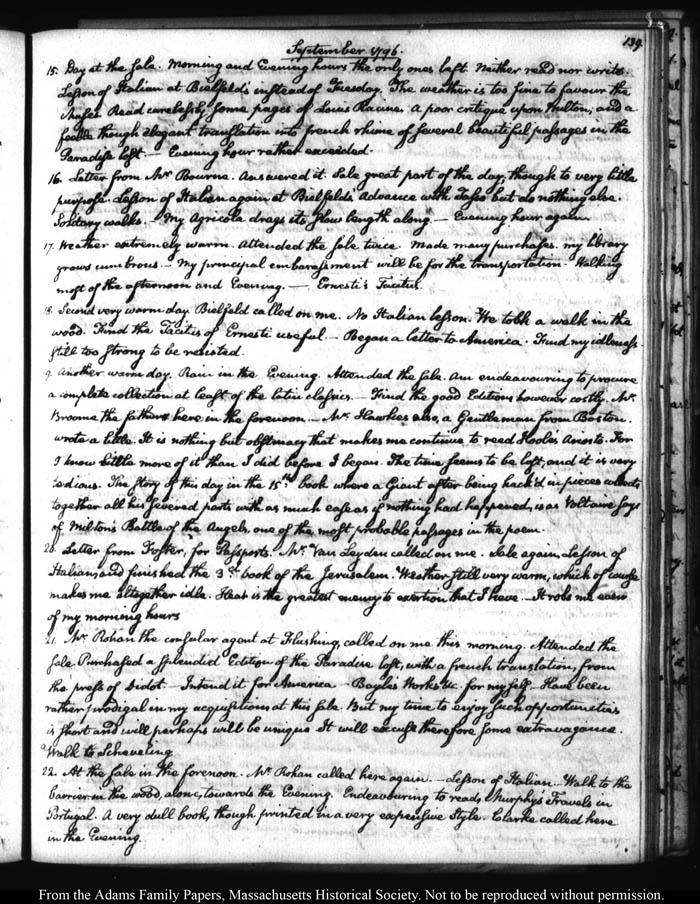 September 1796.
139
15. Day at the sale. Morning and Evening hours the only ones left. Neither read nor write.
Lesson of Italian at Bielfeld's instead of Tuesday. The weather is too fine to favour the
Muses. Read carelessly some pages of Louis Racine. A poor critique upon Milton, and a
feeble though elegant translation into french rhime of several beautiful passages in the
Paradise lost. — Evening hour rather exceeded.
16. Letter from Mr Bourne. Answered it. Sale great part of the day, though to very little
purpose. Lesson of Italian again at Bielfeld's Advance with Tasso but do nothing else.
Solitary walks. — My Agricola drags its slow length along. — Evening hour again.
17. Weather extremely warm. Attended the sale twice. Made many purchases. my library
grows cumbrous. — My principal embarassment will be for the transportation. Walking
most of the afternoon and Evening. — Ernesti's Tacitus.
18. Second very warm day. Bielfeld called on me. No Italian lesson. We took a walk in the
wood. Find the Tacitus of Ernesti useful. — Began a letter to America. Find my idleness
still too strong to be resisted.
9. Another warm day. Rain in the Evening. Attended the sale. Am endeavouring to procure
a complete collection at least of the latin classics. — Find the good Editions however costly. Mr.
Broome the father here in the forenoon. — Mr. Hawkes also, a Gentleman from Boston.
wrote a little. It is nothing but obstinacy that makes me continue to read Hoole's Ariosto. For
I know little more of it than I did before I began. The time seems to be lost, and it is very
tedious. The story of this day in the 15th book where a Giant after being hack'd in pieces collects
together all his severed parts with as much ease as if nothing had happened, is as Voltaire says
of Milton's Battle of the Angels, one of the most probable passages in the poem.
20. Letter from Foster, for Passports. Mr. Van Leyden called on me. Sale again. Lesson of
Italian, and finished the 3d book of the Jerusalem. Weather still very warm, which of course
makes me altogether idle. Heat is the greatest enemy to exertion that I have. — It robs me even
of my morning hours
21. Mr. Rohan the consular agent at Flushing, called on me this morning. Attended the
sale. Purchased a splendid Edition of the Paradise lost, with a french translation, from
the press of Didot. — Intend it for America — Bayle's Works &c. for myself. Have been
rather prodigal in my acquisitions at this sale. But my time to enjoy such opportunities
is short and will perhaps will be unique. It will excuse therefore some extravagance.
Walk to Scheveling
22. At the sale in the forenoon. Mr. Rohan called here again. — Lesson of Italian. Walk to the
barrier in the wood, alone, towards the Evening. Endeavouring to read Murphy's Travels in
Portugal. A very dull book, though printed in a very expensive style. Clarke called here
in the Evening.
From the Adams Family Papers, Massachusetts Historical Society. Not to be reproduced without permission.